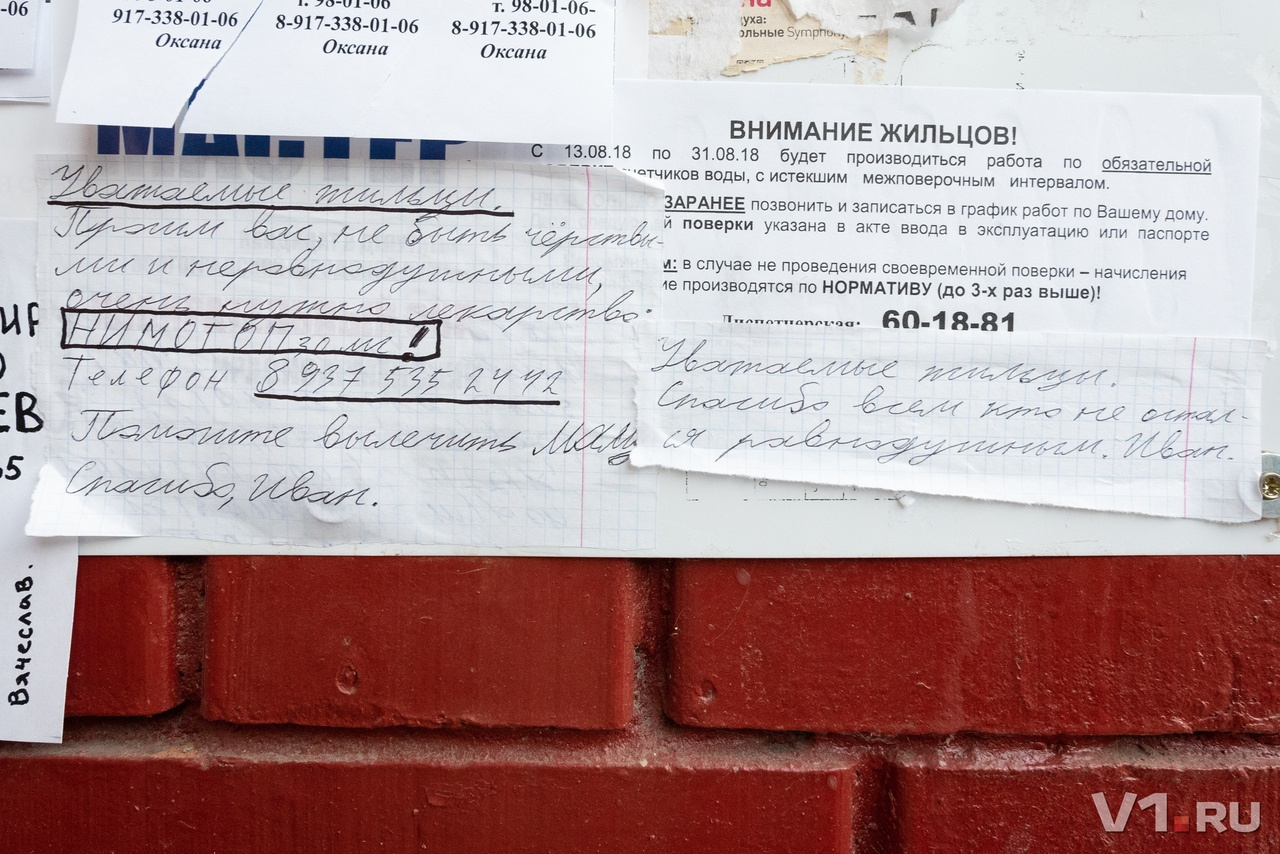 т. 98-01-06
т. 98-01-06-
917-338-01-06
8-917-338-01-06
8-917-338-01-06
Оксана
Оксана
Оксана
духа:
Symphony
МАСТЕР
ВНИМАНИЕ ЖИЛЬЦОВ!
С 13.08.18 по 31.08.18 будет производиться работа по обязательной
счетчиков воды, с истекшим межповерочным интервалом.
ЗАРАНЕЕ позвонить и записаться в график работ по Вашему дому.
й поверки указана в акте ввода в эксплуатацию или паспорте
м: в случае не проведения своевременной поверки – начисления
ие производятся по НОРМАТИВУ (до 3-х раз выше)!
Диспетчерская: 60-18-81
Уважаемые жильцы.
Просим вас, не быть чёрствы-
ми и неравнодушными,
очень нужно лекарство:
НИМОТОП, 30 мг!
Телефон 8 937 535 24 42
Помогите вылечить маму
Спасибо, Иван.
Уважаемые жильцы.
Спасибо всем кто не остал-
ся равнодушным. Иван.
ЕВ
Вячеслав.
V1.RU